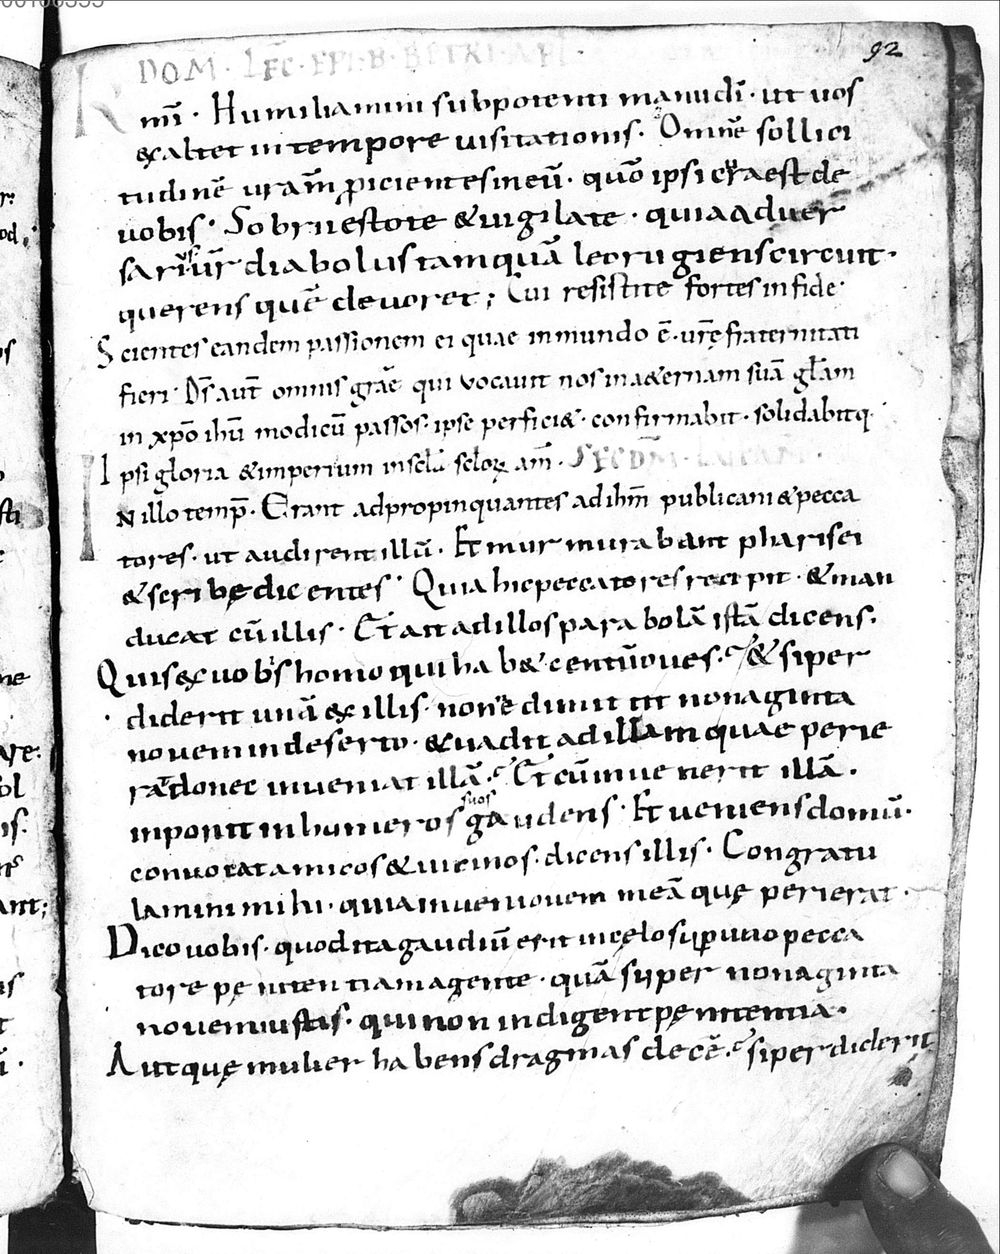 92
DOM · LEC · EPI · B · PETRI · APL ·
K mi · Humiliamini sub potenti manu di · ut uos
exaltet in tempore uisitationis · Omnē sollici
tudinē urām ꝓicientes in eū · quō ipsi cura est de
uobis · Sobrii estote & uigilate · quia aduer
sarius ur diabolus tamquā leo rugiens circuit ·
querens quē deuoret ; Cui resistite fortes in fide ·
Scientes eandem passionem ei quae in mundo ē · urē fraternitati
fieri · Ds aut omnis grāe qui uocauit nos in aeternam suā glām
in xpō ihū modicū passos · ipse perfici& · confirmabit · solidabitq ·
Ipsi gloria & imperium in scla sclorꝝ am · SEC DM · LUCAM ·
IN illo temp · Erant adpropinquantes ad ihm publicani & pecca
tores · ut audirent illū · Et murmurabant pharisei
& scribę dicentes · Quia hic peccatores recipit · & man
ducat cū illis · Et ait ad illos parabolā istā dicens ·
Quis ex uobis homo qui hab& centū oues · & si per
diderit unā ex illis · nonne dimittit nonaginta
nouem in deserto · & uadit ad illam quae perie
rat donec inueniat illā · Et cū inuenerit illā ·
inponit in humeros suos gaudens · Et ueniens domū ·
conuocat amicos & uicinos · dicens illis · Congratu
lamini mihi · quia inueni ouem meā quę perierat ·
Dico uobis · quod ita gaudiū erit in cęlo sup uno pecca
tore pęnitentiam agente · quā super nonaginta
nouem iustis · qui non indigent pęnitentia ·
Aut quę mulier habens dragmas decē · & si perdiderit